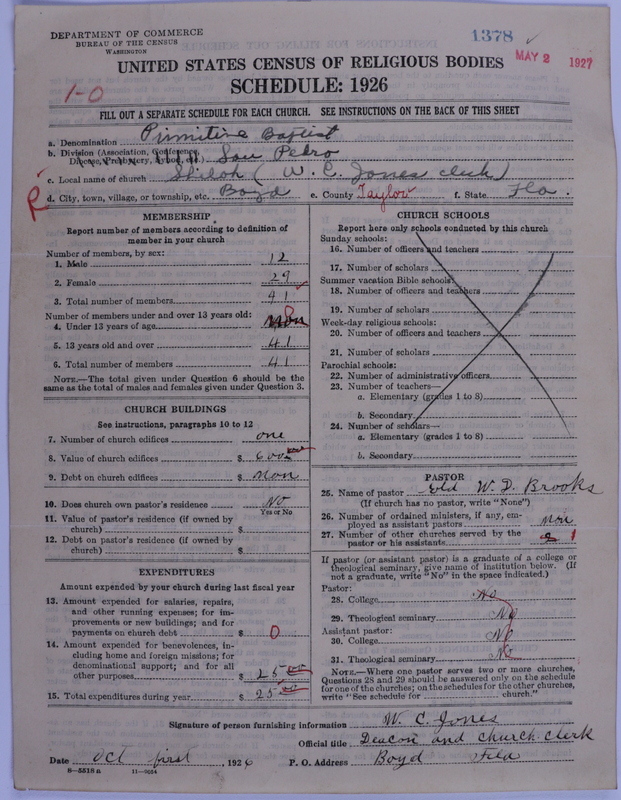 DEPARTMENT OF COMMERCE
BUREAU OF THE CENSUS
WASHINGTON
1378
MAY 2 1927
UNITED STATES CENSUS OF RELIGIOUS BODIES
SCHEDULE: 1926
1-0
FILL OUT A SEPARATE SCHEDULE FOR EACH CHURCH. SEE INSTRUCTIONS ON THE BACK OF THIS SHEET
a. Denomination Primitive Baptist
b. Division (Association, Conference, Diocese, Presbytery, Synod, etc.) San Pedro
c. Local name of church Shiloh (W. C. Jones clerk)
d. City, town, village, or township, etc. Boyd e. County Taylor f. State Fla.
R
MEMBERSHIP
Report number of members according to definition of
member in your church
Number of members, by sex:
1. Male 12
2. Female 29
3. Total number of members 41
Number of members under and over 13 years old:
4. Under 13 years of age non 0
5. 13 years old and over 41
6. Total number of members 41
NOTE.—The total given under Question 6 should be the
same as the total of males and females given under Question 3.
CHURCH BUILDINGS
See instructions, paragraphs 10 to 12
7. Number of church edifices one
8. Value of church edifices $ 600 00
9. Debt on church edifices $ Non
10. Does church own pastor's residence No
Yes or No
11. Value of pastor's residence (if owned by
church) $
12. Debt on pastor's residence (if owned by
church) $
EXPENDITURES
Amount expended by your church during last fiscal year
13. Amount expended for salaries, repairs,
and other running expenses; for im-
provements or new buildings; and for
payments on church debt $ 0
14. Amount expended for benevolences, in-
cluding home and foreign missions; for
denominational support; and for all
other purposes $ 25 00
15. Total expenditures during year $ 25 00
CHURCH SCHOOLS
Report here only schools conducted by this church
Sunday schools:
16. Number of officers and teachers
17. Number of scholars
Summer vacation Bible schools:
18. Number of officers and teachers
19. Number of scholars
Week-day religious schools:
20. Number of officers and teachers
21. Number of scholars
Parochial schools:
22. Number of administrative officers
23. Number of teachers—
a. Elementary (grades 1 to 8)
b. Secondary
24. Number of scholars—
a. Elementary (grades 1 to 8)
b. Secondary
PASTOR
25. Name of pastor Eld W. D. Brooks
(If church has no pastor, write "None")
26. Number of ordained ministers, if any, em-
ployed as assistant pastors non
27. Number of other churches served by the
pastor or his assistants 1
If pastor (or assistant pastor) is a graduate of a college or
theological seminary, give name of institution below. (If
not a graduate, write "No" in the space indicated.)
Pastor:
28. College No
29. Theological seminary No
Assistant pastor:
30. College No
31. Theological seminary No
NOTE.—Where one pastor serves two or more churches,
Questions 28 and 29 should be answered only on the schedule
for one of the churches; on the schedules for the other churches,
write "See schedule for church."
Signature of person furnishing information W. C. Jones
Official title Deacon and church clerk
Date Oct first 1926 P. O. Address Boyd Fla
8—5518 a 11—9654